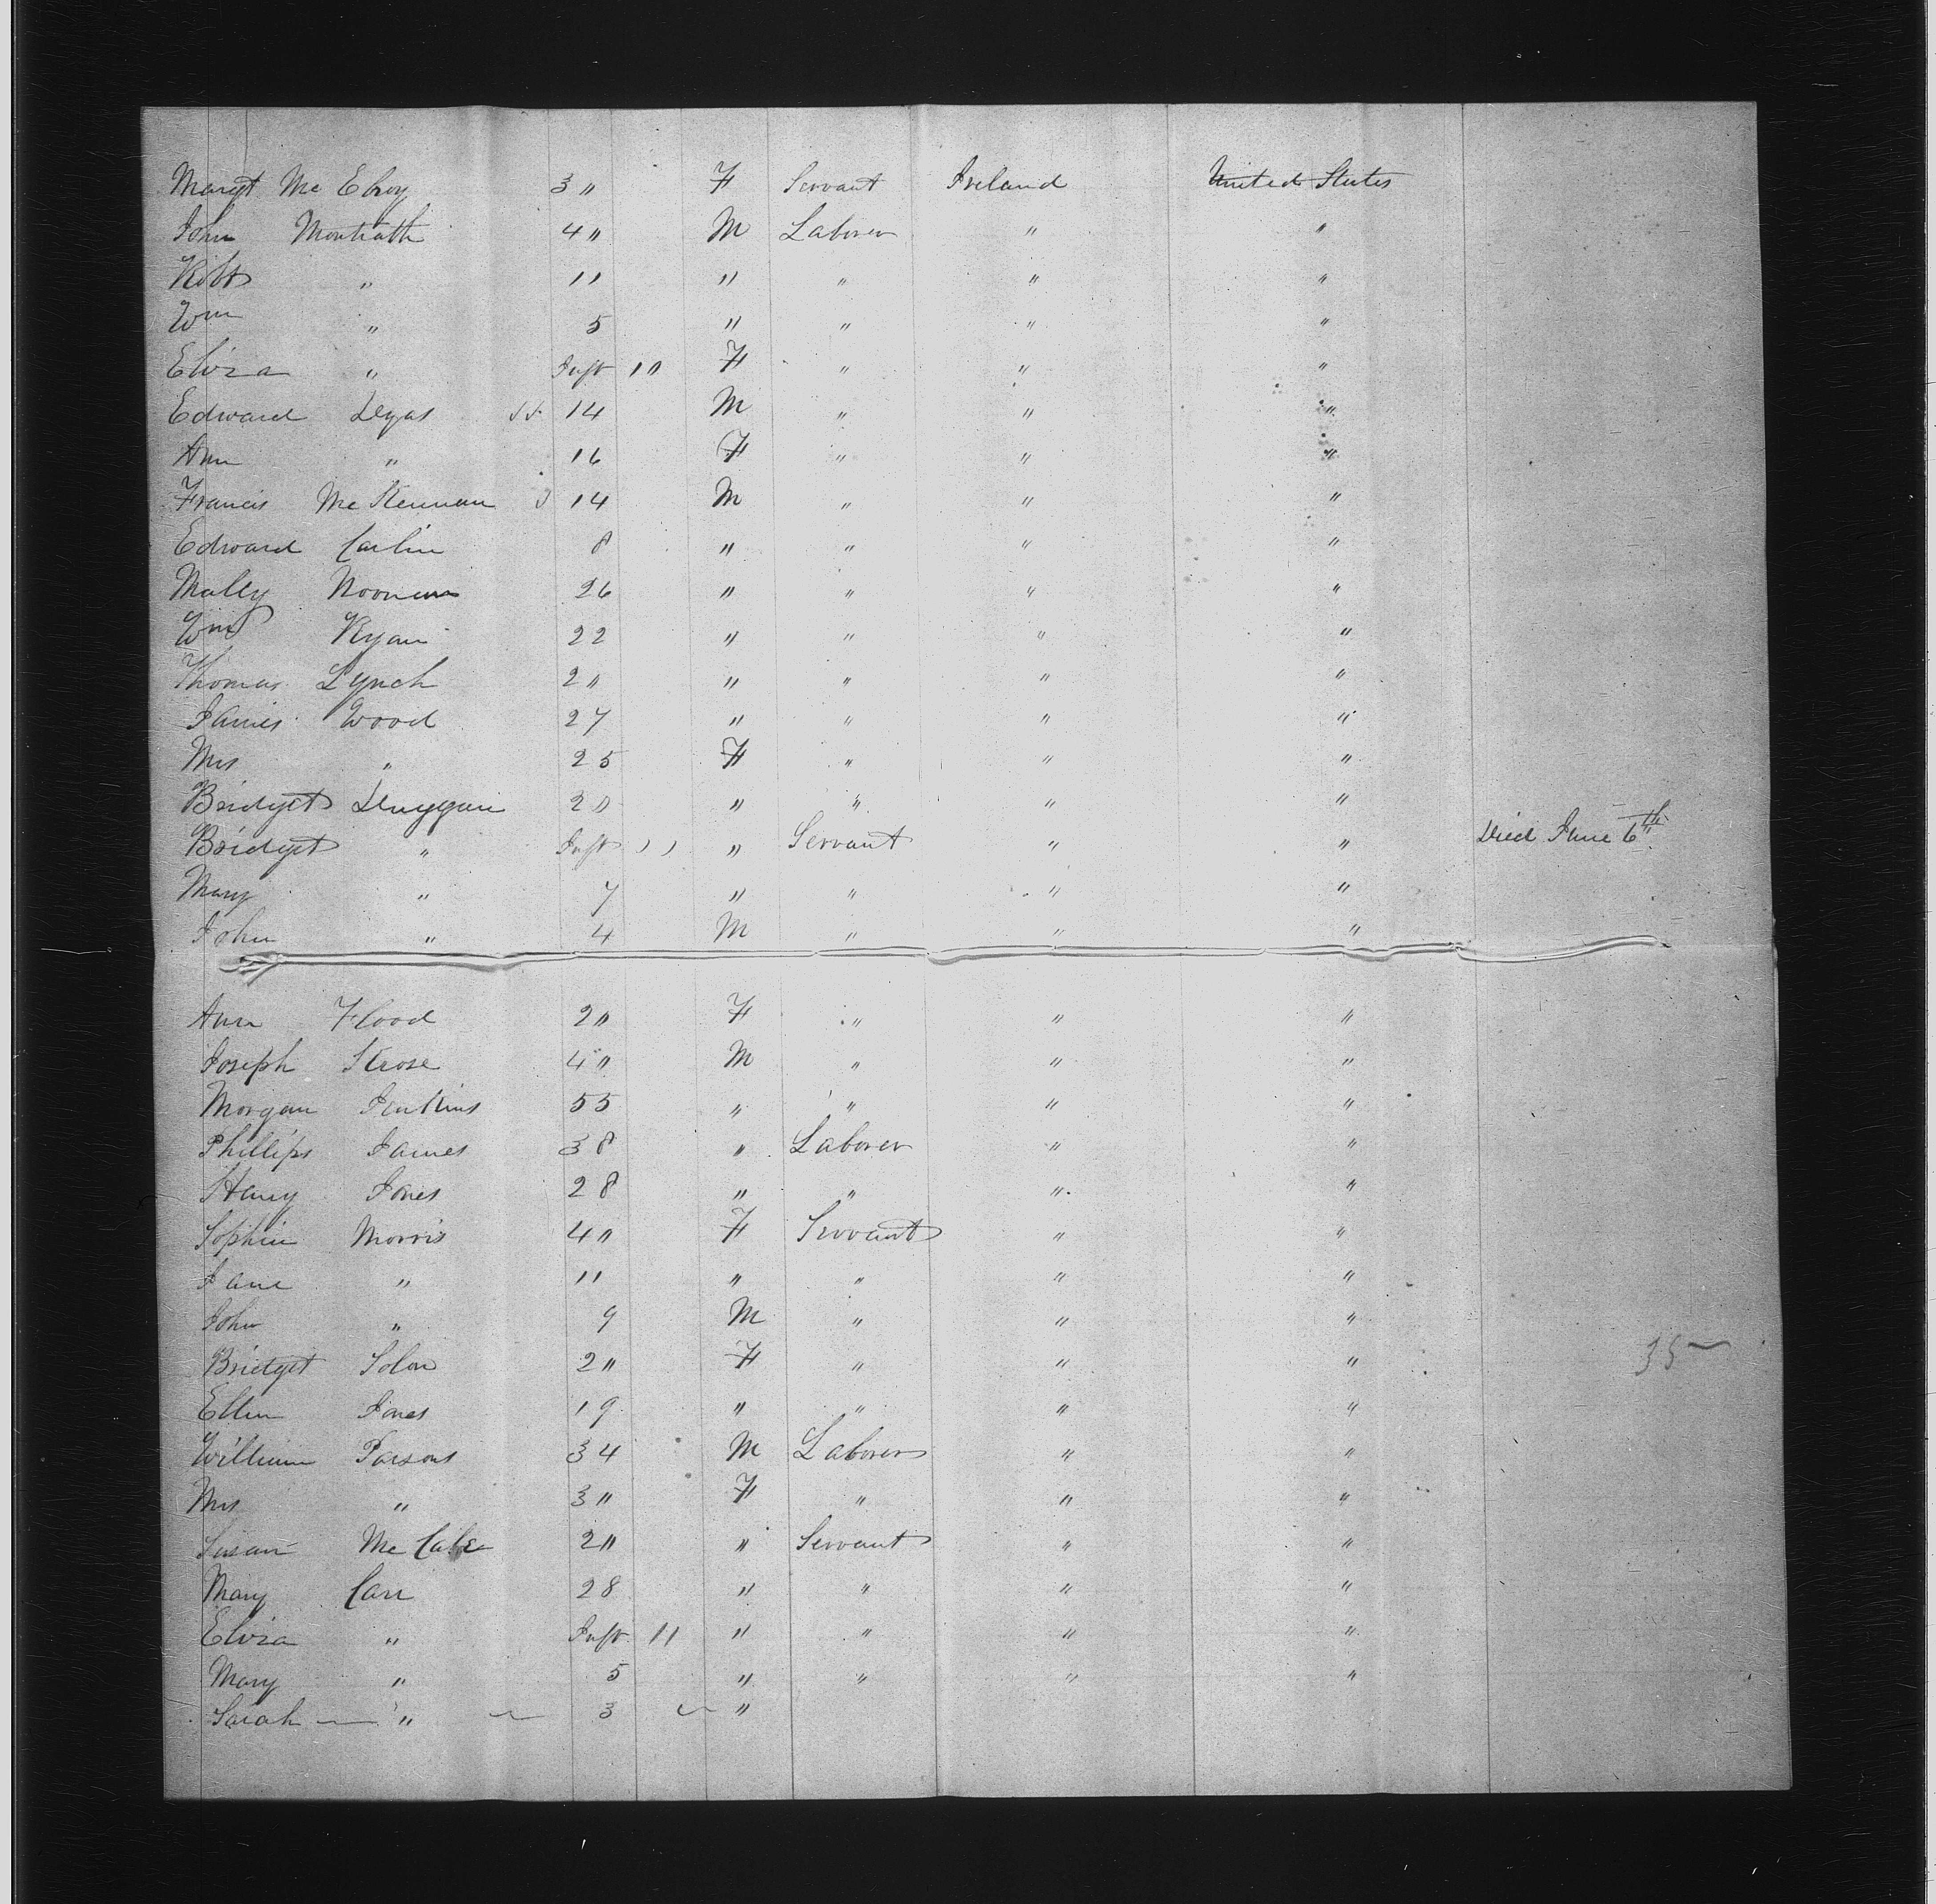 Margt Mc Elroy 3 " F Servant Ireland United States
John Montrath 4 " M Laborer " "
Robt " 11 " " " "
Wm " 5 " " " "
Eliza " Inft 10 F " " "
Edward Dyas 14 M " " "
Ann " 16 F " " "
Francis Mc Kennan 14 M " " "
Edward Carlin 8 " " " "
Mally Noonan 26 " " " "
Wm Ryan 22 " " " "
Thomas Lynch 2 " " " " "
James Wood 27 " " " "
Mrs " 25 F " " "
Bridget Duggan 20 " " " "
Bridget " Inft 11 " Servant " " Died June 6th
Mary " 7 " " " "
John " 4 M " " "
Ann Flood 2 " F " " "
Joseph Krose 4 " M " " "
Morgan Jenkins 55 " " " "
Phillips James 38 " Laborer " "
Henry Jones 28 " " " "
Sophia Morris 4 " F Servant " "
Jane " 11 " " " "
John " 9 M " " "
Bridget Solon 2 " F " " "
35
Ellen Jones 19 " " " "
William Parsons 34 M Laborer " "
Mrs " 3 " F " " "
Susan Mc Cabe 2 " " Servant " "
Mary Carr 28 " " " "
Eliza " Inft 11 " " " "
Mary " 5 " " " "
Sarah " 3 "